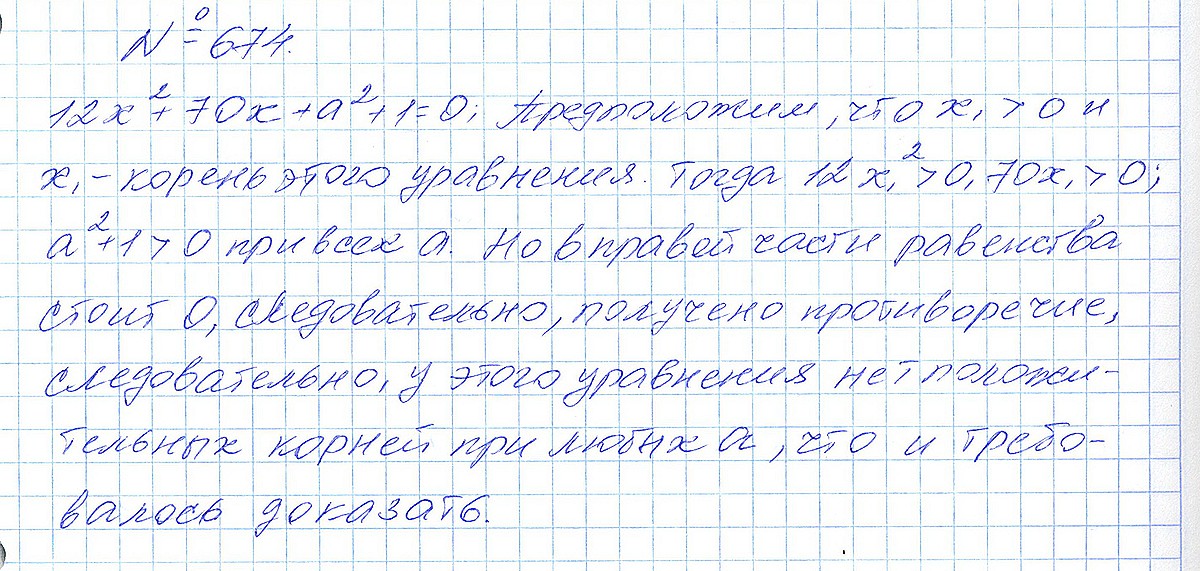 № 674.
12x² + 70x + a² + 1 = 0; Предположим, что x₁ > 0 и
x₁ - корень этого уравнения. Тогда 12x₁² > 0, 70x₁ > 0;
a² + 1 > 0 при всех a. Но в правой части равенства
стоит 0, следовательно, получено противоречие,
следовательно, у этого уравнения нет положи-
тельных корней при любых a, что и требо-
валось доказать.